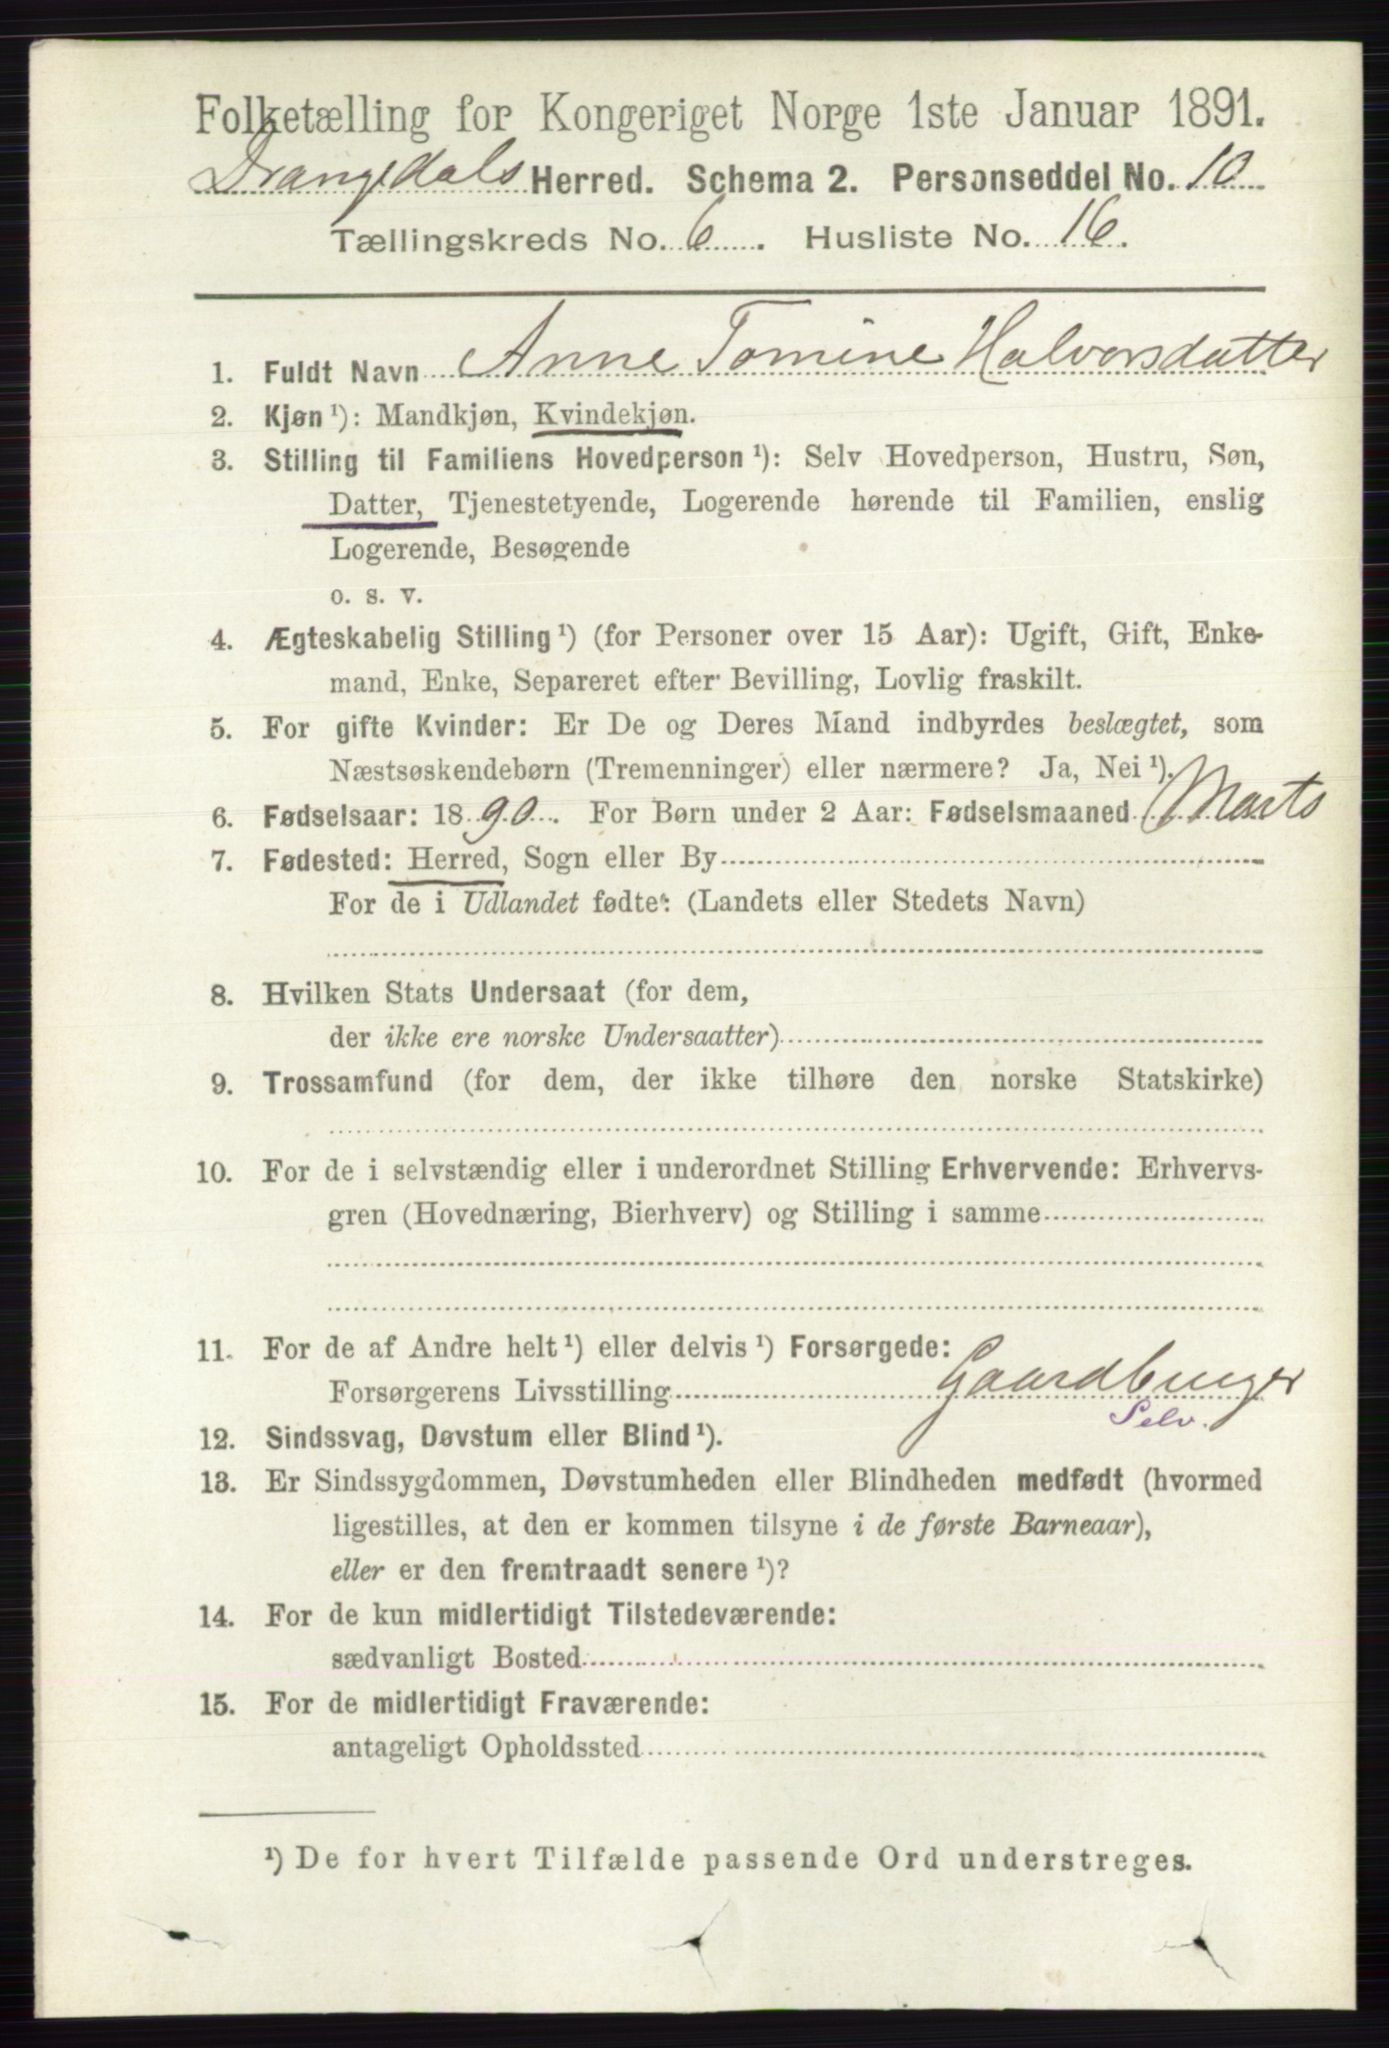 Folketælling for Kongeriget Norge 1ste Januar 1891.
Drangedals Herred. Schema 2. Personseddel No. 10
Tællingskreds No. 6. Husliste No. 16.
1. Fuldt Navn Anne Tomine Halvorsdatter
2. Kjøn ¹): Mandkjøn, Kvindekjøn.
3. Stilling til Familiens Hovedperson ¹): Selv Hovedperson, Hustru, Søn,
Datter, Tjenestetyende, Logerende hørende til Familien, enslig
Logerende, Besøgende
o. s. v.
4. Ægteskabelig Stilling ¹) (for Personer over 15 Aar): Ugift, Gift, Enke-
mand, Enke, Separeret efter Bevilling, Lovlig fraskilt.
5. For gifte Kvinder: Er De og Deres Mand indbyrdes beslægtet, som
Næstsøskendebørn (Tremenninger) eller nærmere? Ja, Nei ¹).
6. Fødselsaar: 1890. For Børn under 2 Aar: Fødselsmaaned Marts
7. Fødested: Herred, Sogn eller By
For de i Udlandet fødte: (Landets eller Stedets Navn)
8. Hvilken Stats Undersaat (for dem,
der ikke ere norske Undersaatter)
9. Trossamfund (for dem, der ikke tilhøre den norske Statskirke)
10. For de i selvstændig eller i underordnet Stilling Erhvervende: Erhvervs-
gren (Hovednæring, Bierhverv) og Stilling i samme
11. For de af Andre helt ¹) eller delvis ¹) Forsørgede:
Forsørgerens Livsstilling Gaardbruger
Selv.
12. Sindssvag, Døvstum eller Blind ¹).
13. Er Sindssygdommen, Døvstumheden eller Blindheden medfødt (hvormed
ligestilles, at den er kommen tilsyne i de første Barneaar),
eller er den fremtraadt senere ¹)?
14. For de kun midlertidigt Tilstedeværende:
sædvanligt Bosted
15. For de midlertidigt Fraværende:
antageligt Opholdssted
¹) De for hvert Tilfælde passende Ord understreges.